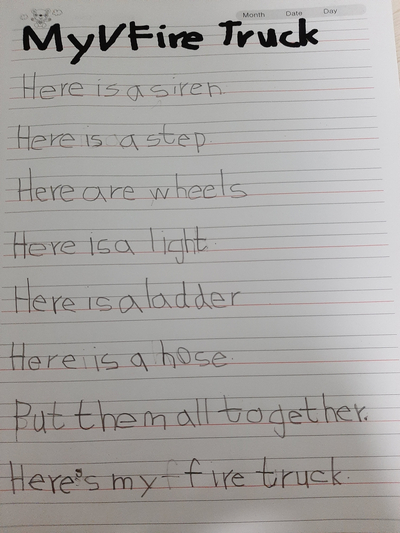 Month Date Day
My Fire Truck
Here is a siren
Here is a step
Here are wheels
Here is a light
Here is a ladder
Here is a hose
Put them all together.
Here's my fire truck.